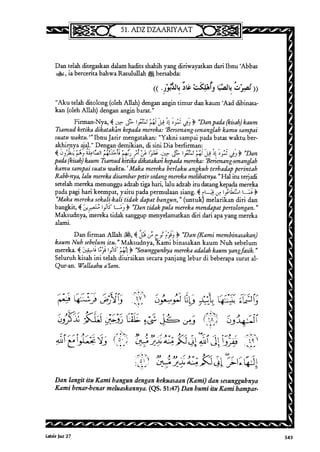 51. ADZ DZAARIYAAT
Dan telah ditegaskan dalam hadits shahih yang diriwayatkan dari Ibnu 'Abbas
ﷺ, ia bercerita bahwa Rasulullah ﷺ bersabda:
(( نُصِرْتُ بِالصَّبَا وَأُهْلِكَتْ عَادٌ بِالدَّبُورِ. ))
"Aku telah ditolong (oleh Allah) dengan angin timur dan kaum 'Aad dibinasa-
kan (oleh Allah) dengan angin barat."
Firman-Nya, ﴾ وَفِي ثَمُودَ إِذْ قِيلَ لَهُمْ تَمَتَّعُوا حَتَّىٰ حِينٍ ﴿ "Dan pada (kisah) kaum
Tsamud ketika dikatakan kepada mereka: 'Bersenang-senanglah kamu sampai
suatu waktu.'" Ibnu Jarir mengatakan: "Yakni sampai pada batas waktu ber-
akhirnya ajal." Dengan demikian, di sini Dia berfirman:
"Dan
pada (kisah) kaum Tsamud ketika dikatakan kepada mereka: 'Bersenang-senanglah
kamu sampai suatu waktu.' Maka mereka berlaku angkuh terhadap perintah
Rabb-nya, lalu mereka disambar petir sedang mereka melihatnya." Hal itu terjadi
setelah mereka menunggu adzab tiga hari, lalu adzab itu datang kepada mereka
pada pagi hari keempat, yaitu pada permulaan siang. ﴾ فَمَا اسْتَطَاعُوا مِن قِيَامٍ ﴿
"Maka mereka sekali-kali tidak dapat bangun," (untuk) melarikan diri dan
bangkit, ﴾ وَمَا كَانُوا مُنتَصِرِينَ ﴿ "Dan tidak pula mereka mendapat pertolongan."
Maksudnya, mereka tidak sanggup menyelamatkan diri dari apa yang mereka
alami.
Dan firman Allah ﷻ, ﴾ وَقَوْمَ نُوحٍ مِّن قَبْلُ ﴿ "Dan (Kami membinasakan)
kaum Nuh sebelum itu." Maksudnya, Kami binasakan kaum Nuh sebelum
mereka. ﴾ إِنَّهُمْ كَانُوا قَوْمًا فَاسِقِينَ ﴿ "Sesungguhnya mereka adalah kaum yang fasik."
Seluruh kisah ini telah diuraikan secara panjang lebar di beberapa surat al-
Qur-an. Wallaahu a'lam.
وَالسَّمَاءَ بَنَيْنَاهَا بِأَيْيدٍ وَإِنَّا لَمُوسِعُونَ ﴿٤٧﴾ وَالْأَرْضَ فَرَشْنَاهَا فَنِعْمَ
الْمَاهِدُونَ ﴿٤٨﴾ وَمِن كُلِّ شَيْءٍ خَلَقْنَا زَوْجَيْنِ لَعَلَّكُمْ تَذَكَّرُونَ
﴿٤٩﴾ فَفِرُّوا إِلَى اللَّهِ إِنِّي لَكُم مِّنْهُ نَذِيرٌ مُّبِينٌ ﴿٥٠﴾ وَلَا تَجْعَلُوا مَعَ اللَّهِ
إِلَٰهًا آخَرَ إِنِّي لَكُم مِّنْهُ نَذِيرٌ مُّبِينٌ ﴿٥١﴾
Dan langit itu Kami bangun dengan kekuasaan (Kami) dan sesungguhnya
Kami benar-benar meluaskannya. (QS. 51:47) Dan bumi itu Kami hampar-
Tafsir Juz 27
545